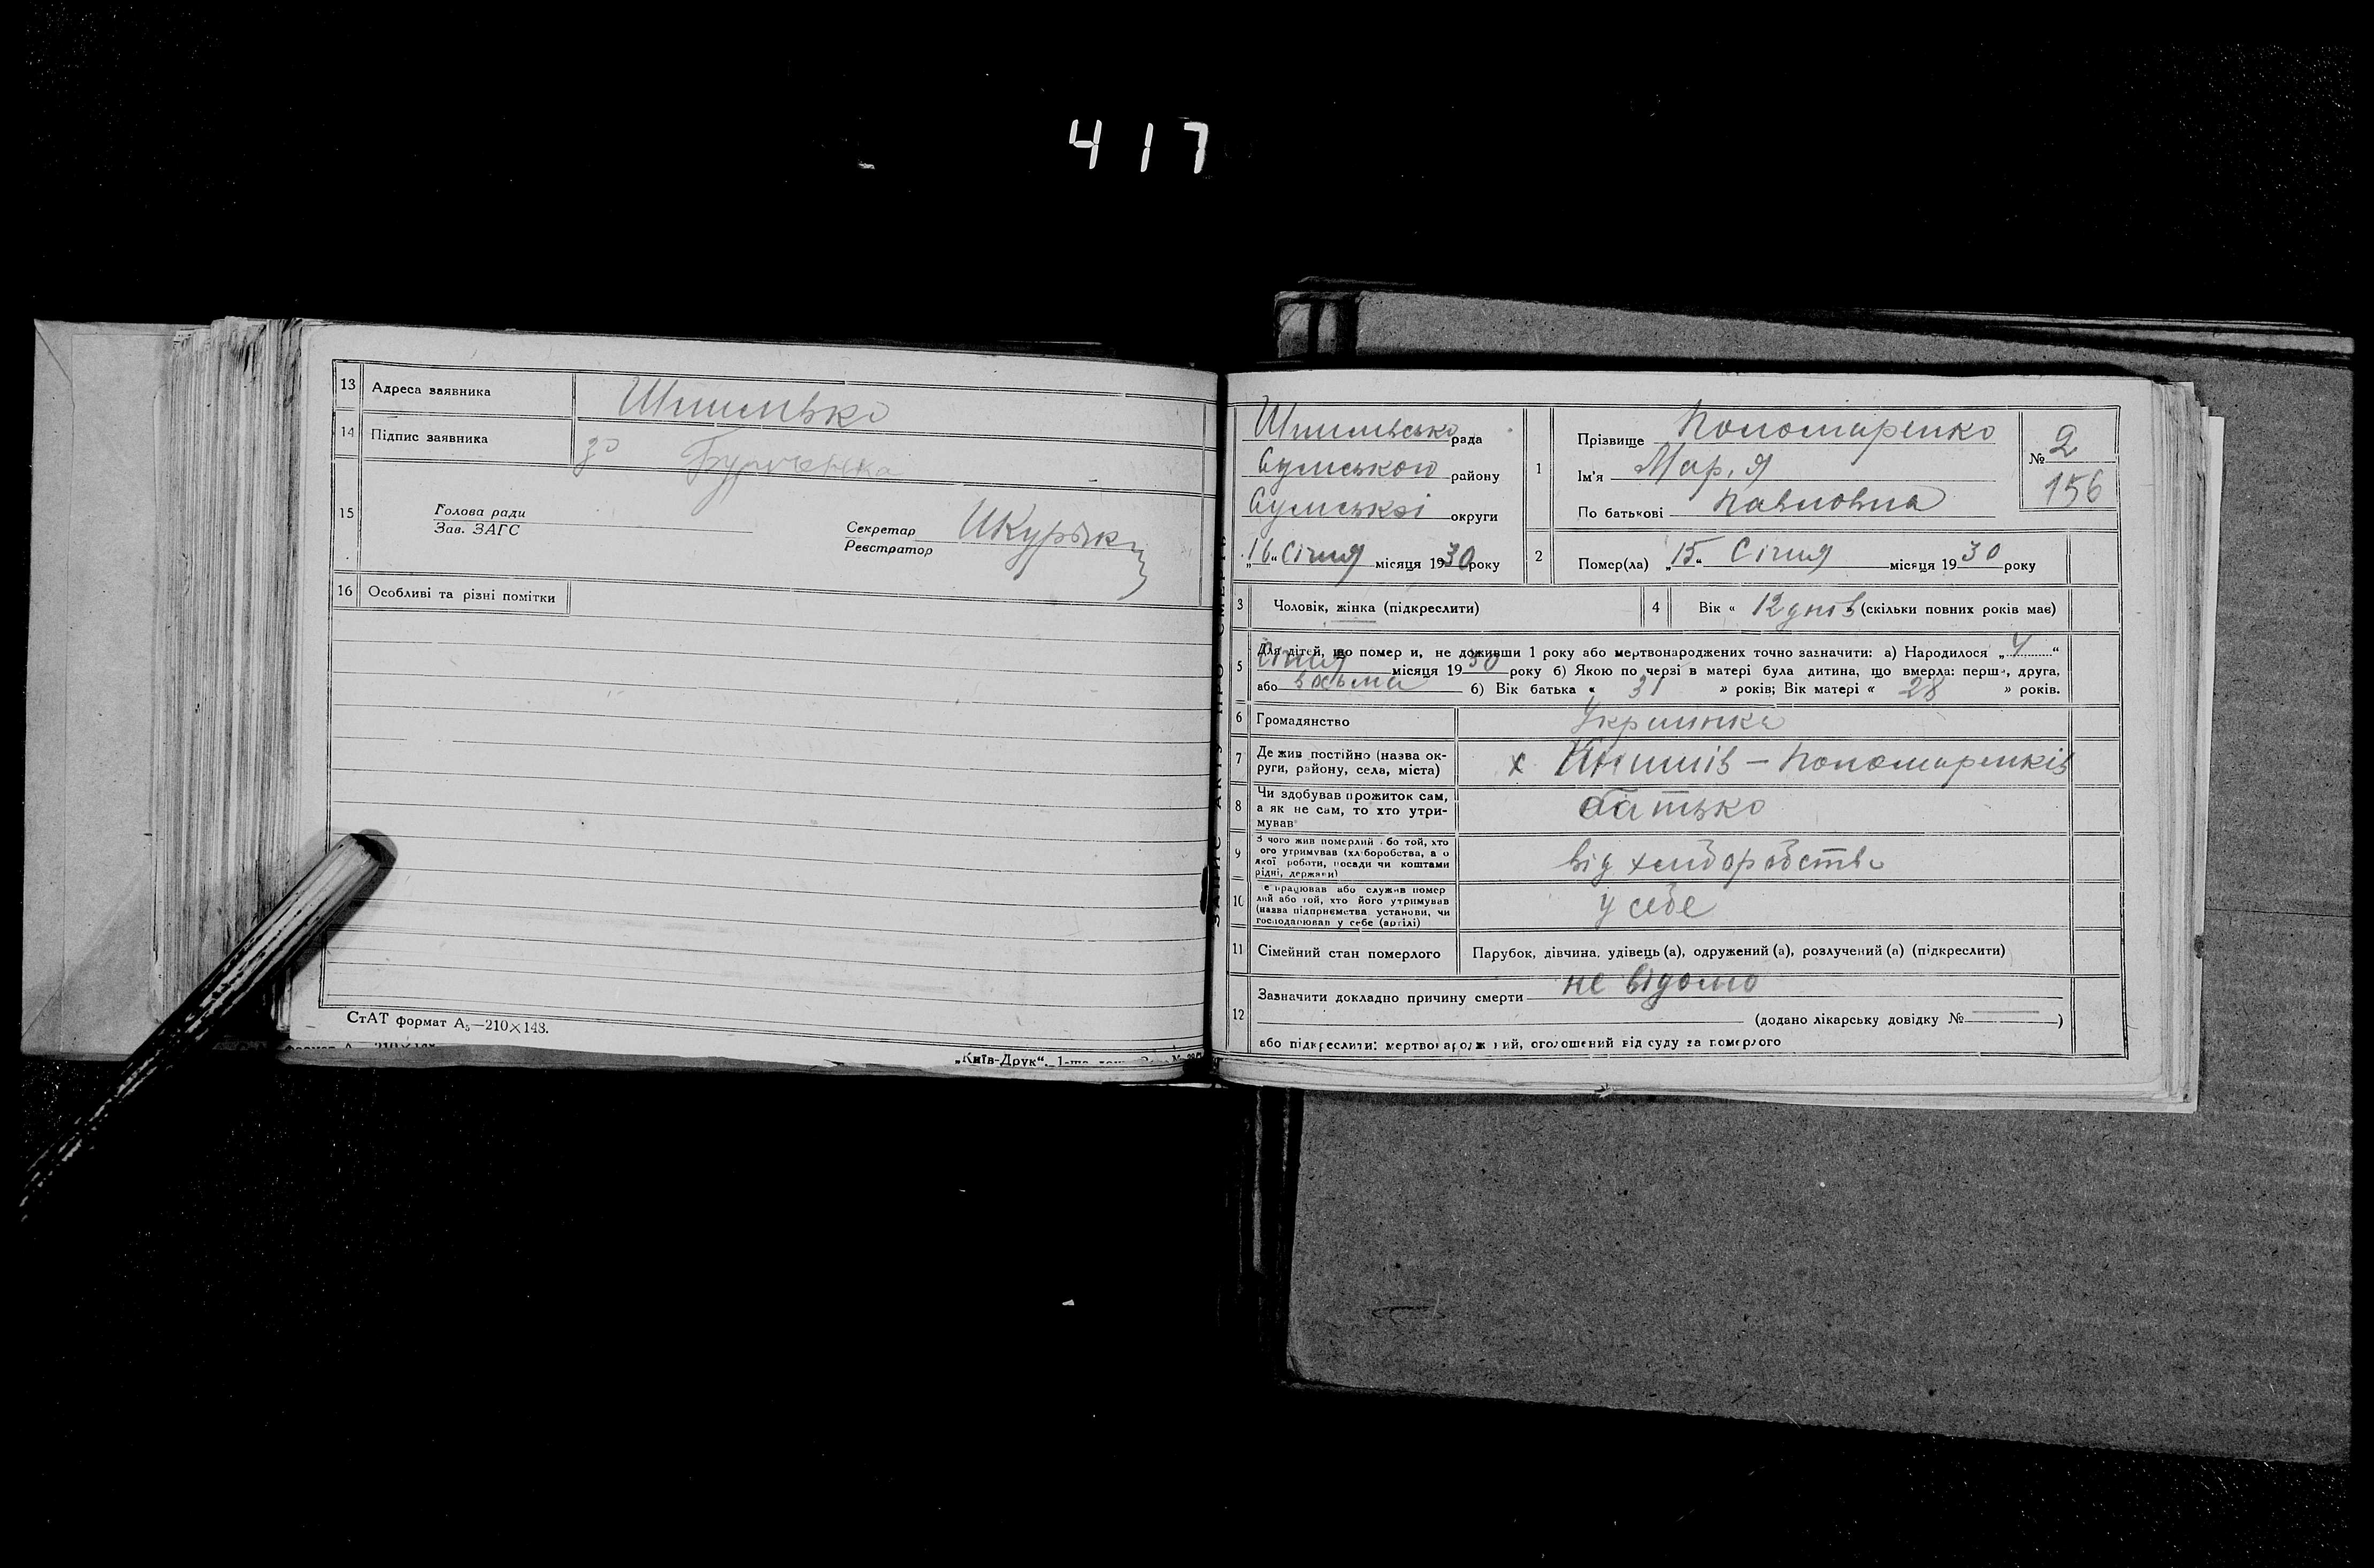 417
13 Адреса заявника Шпилько
14 Підпис заявника за
15 Голова ради
Зав. ЗАГС
Секретар
Реєстратор
16 Особливі та різні помітки
СтАТ формат А₅—210×148.
„Київ-Друк“.
Шпилівсько рада
Сумського району
Сумської округи
„16“ Січня місяця 1930 року
1 Прізвище Пономаренко
Ім'я Мар,я
По батькові Павловна
№ 2
156
2 Помер(ла) „15“ Січня місяця 1930 року
3 Чоловік, жінка (підкреслити)
4 Вік « 12 днів (скільки повних років має)
5 Для дітей, що помер и, не доживши 1 року або мертвонароджених точно зазначити: а) Народилося „4“
Січня місяця 1930 року б) Якою по черзі в матері була дитина, що вмерла: перша, друга,
або восьма б) Вік батька « 31 » років; Вік матері « 28 » років.
6 Громадянство Українка
7 Де жив постійно (назва ок-
руги, району, села, міста) х – Пономаренків
8 Чи здобував прожиток сам,
а як не сам, то хто утри-
мував батько
9 З чого жив померлий або той, хто
ого утримував (хліборобства, а о
якої роботи, посади чи коштами
рідні, держави) від хліборобства
10 е працював або служив помер
лий або той, хто його утримував
(назва підприємства, установи, чи
господарював у себе (артілі) у себе
11 Сімейний стан померлого Парубок, дівчина, удівець (а), одружений (а), розлучений (а) (підкреслити)
12 Зазначити докладно причину смерти не відомо
(додано лікарську довідку № —)
або підкреслити: мертвонароджений, оголошений від суду за померлого